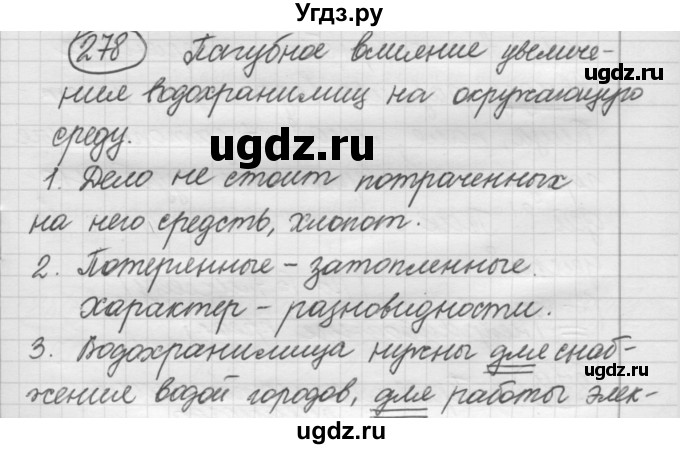 Угдз.ру
278 Пагубное влияние увеличе-
ugdz.ru
ния водохранилищ на окружающую
ugdz.ru
среду.
1. Дело не стоит потраченных
на него средств, хлопот.
2. Потерянные – затопленные.
ugdz.ru
характер – разновидности.
ugdz.ru
3. Водохранилища нужны для снаб-
ugdz.ru
жения водой городов, для работы элек-
ugdz.ru